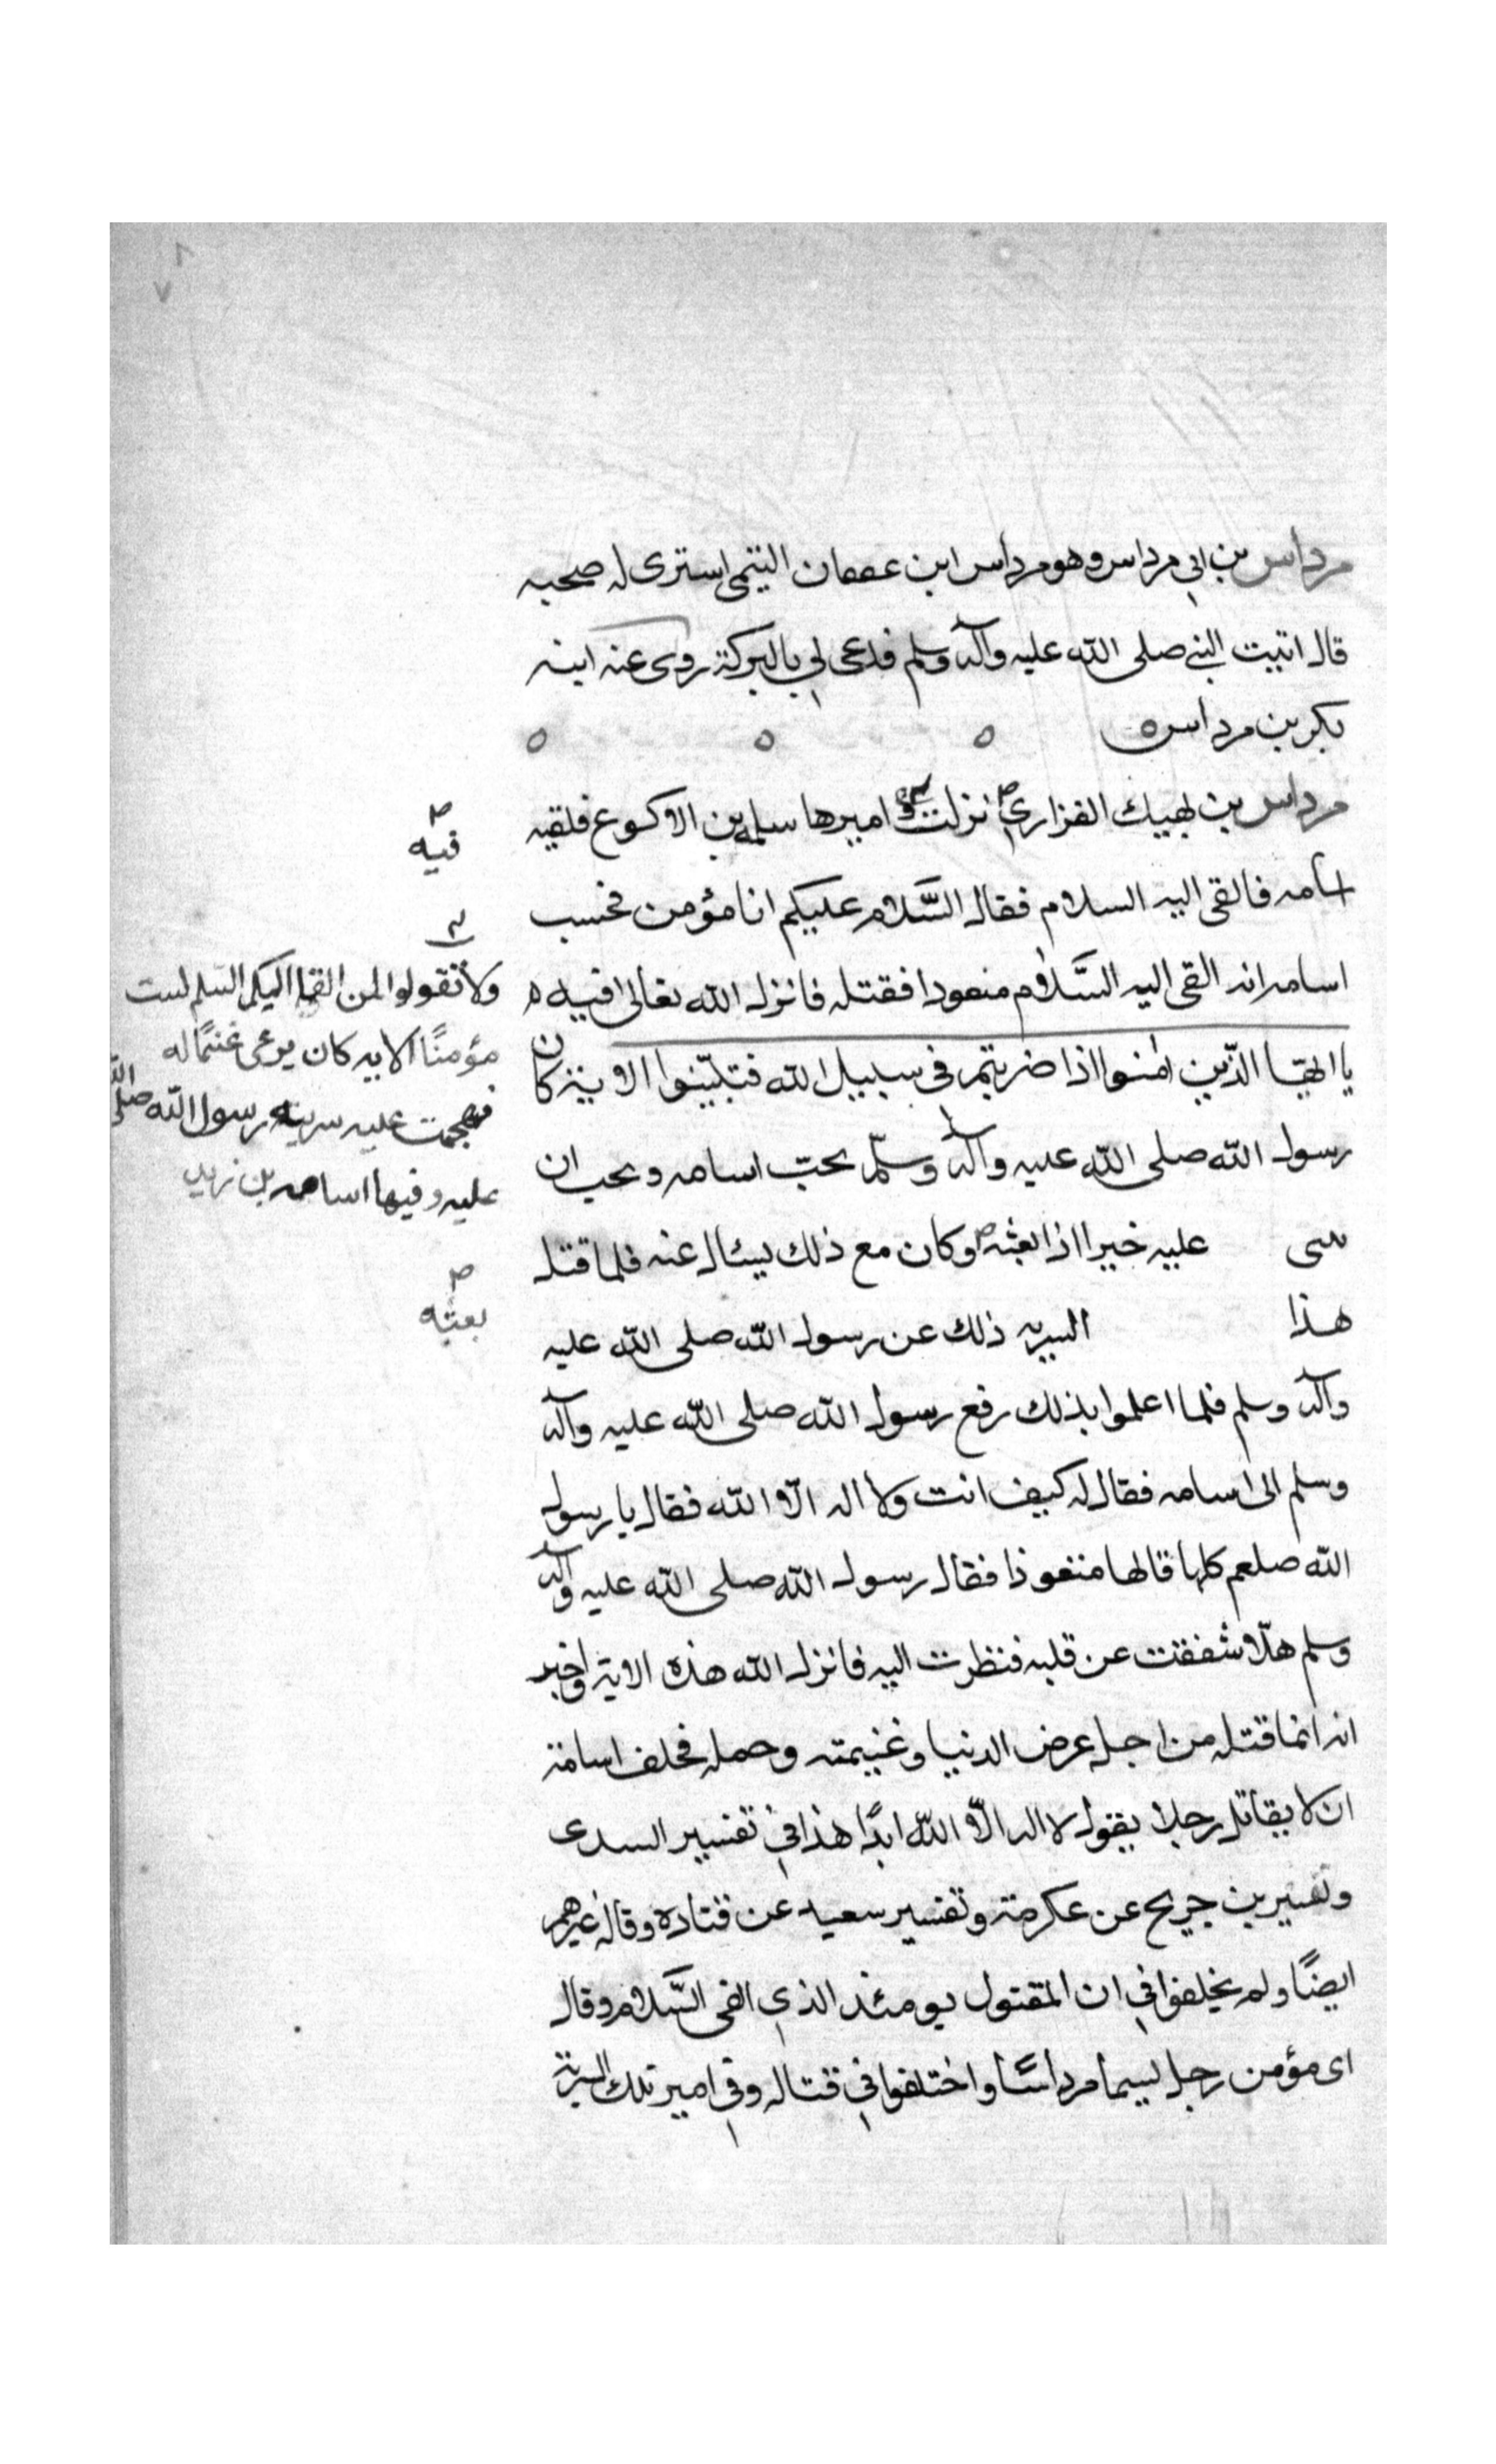 مرداس بن ابي مرداس وهو مرداس ابن عفان التيمى استرى له صحبه
قال اتيت النبي صلى الله عليه وآله وسلم فدعى لي بالبركة روى عنه ابنه
بكر بن مرداس ه ه ه ه
مرداس بن نهيك الفزاري نزلت اميرها سلمه بن الاكوع فلقيه
اسامه فالقى اليه السلام فقال السَّلام عليكم انا مؤمن فحسب
اسامه انه القى اليه السَّلام متعودا فقتله فانزل الله تعالى فيه
يا ايها الذّين اٰمنوا اذا ضربتم في سبيل الله فتبيّنوا الاية كان
رسول الله صلى الله عليه وآله وسلّم يحبّ اسامه ويحب ان
سى عليه خيرا اذا بعثه وكان مع ذلك يسئال عنه فلما قتل
هذا السريه ذلك عن رسول الله صلى الله عليه
وآله وسلم فلما اعلموا بذلك رفع رسول الله صلى الله عليه وآله
وسلم الى اسامه فقال له كيف انت ولا اله الّا الله فقال يا رسول
الله صلعم كلها قالها متعوذا فقال رسول الله صلى الله عليه وآله
وسلم هلّا شققت عن قلبه فنظرت اليه فانزل الله هذه الاية واخبر
انه انما قتله من اجل عرض الدنيا وغنيمته وحمله فحلف اسامة
ان لا يقاتل رجلا يقول لا اله الّا الله ابدًا هذا في تفسير السدى
وتفسير بن جريج عن عكرمة وتفسير سعيد عن قتادة وقال غيرهم
ايضًا ولم يخلفوا في ان المقتول يومئذ الذي القى السَّلام وقال
اى مؤمن رجل يسما مرداسًا واختلفوا في قتاله وفي امير تلك السرية
فيه
ولا تقولوا لمن القى اليكم السلم لست
مؤمنًا الايه كان يرعى غنمًا له
فهجمت عليه سريته رسول الله صلى الله
عليه وفيها اسامه بن زيد
بعثه